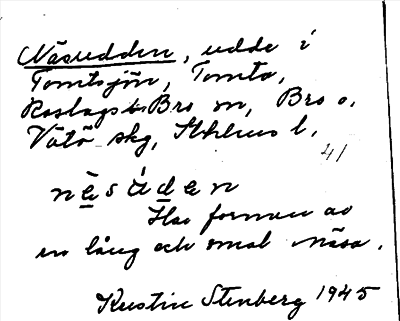 Näsudden, udde i
Tomtsjön, Tomta,
Roslags-Bro sn, Bro o.
Vätö skg, Sthlms l.
41
nä̀súden
Har formen av
en lång och smal näsa.
Kerstin Stenberg 1945